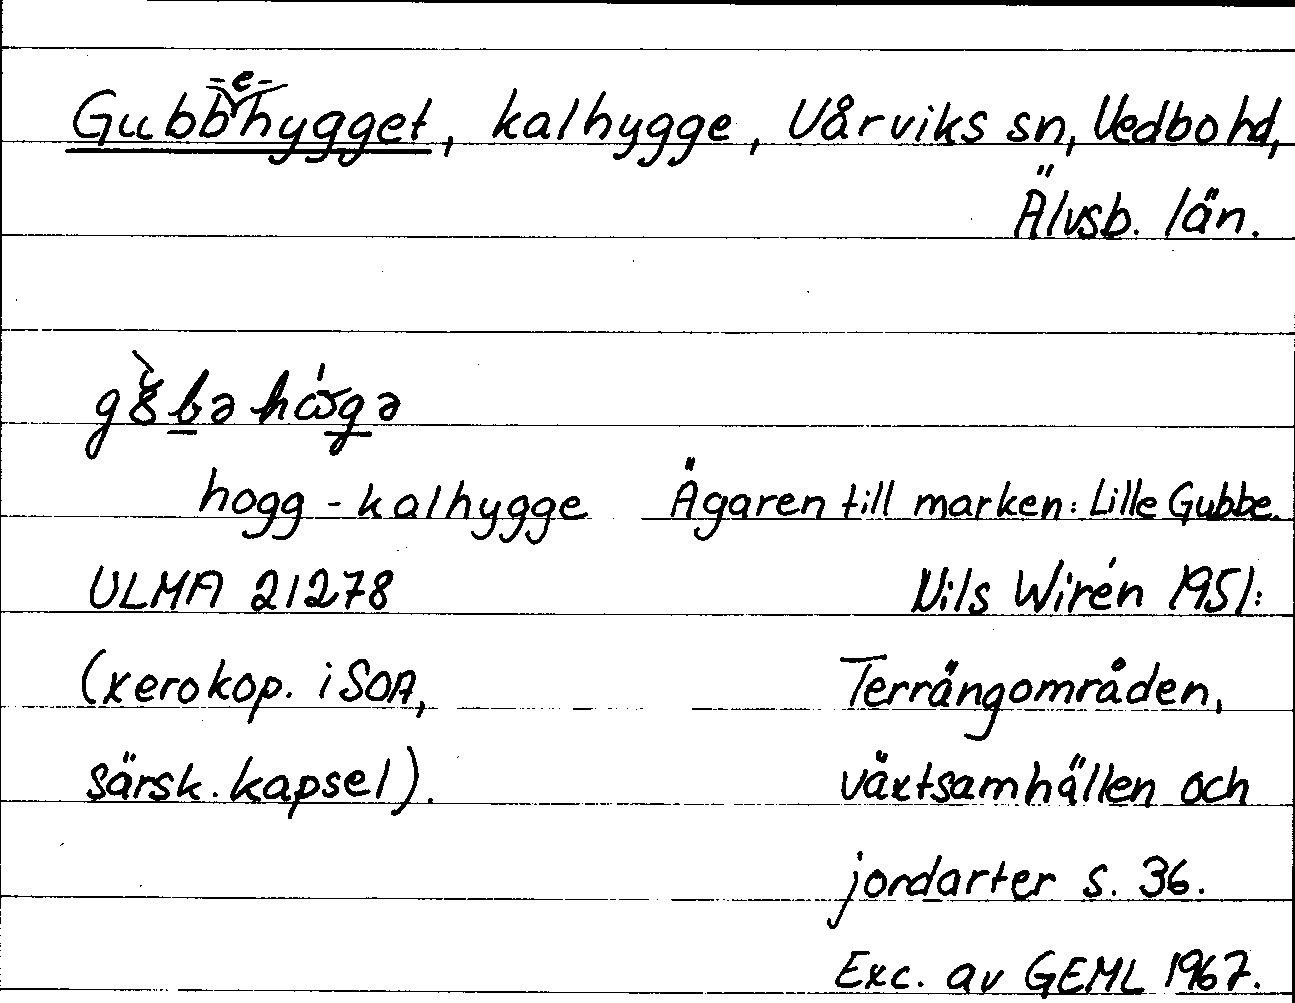 Gubb-e-hygget, kalhygge, Vårviks sn, Vedbo hd,
Älvsb. län.
hogg - kalhygge Ägaren till marken: Lille Gubbe.
ULMA 21278 Nils Wirén 1951:
(xerokop. i SOA, Terrängområden,
särsk. kapsel). växtsamhällen och
jordarter s. 36.
Exc. av GEML 1967.